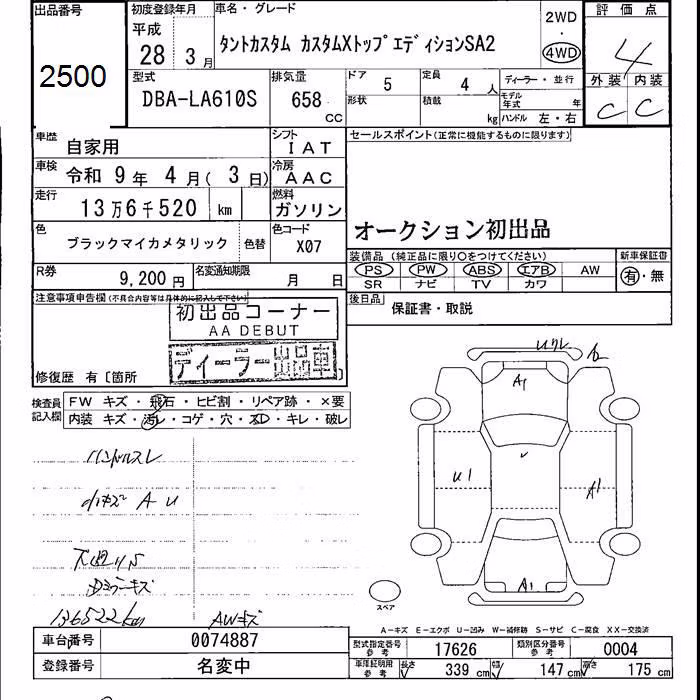 出品番号
2500
初度登録年月
平成
28 3月
車名・グレード
タントカスタム カスタムXトップエディションSA2
2WD
・
4WD
評価点
4
外装 内装
C C
型式
DBA-LA610S
排気量
658
CC
ドア
5
定員
4 人
ディーラー・並行
形状
積載
kg
モデル
年式 年
ハンドル 左・右
車歴
自家用
シフト
IAT
セールスポイント(正常に機能するものに限ります)
車検
令和 9年 4月( 3日)
冷房
AAC
走行
13万6千520 km
燃料
ガソリン
オークション初出品
色
ブラックマイカメタリック
色替
色コード
X07
装備品 (純正品に限り○をつけてください)
PS PW ABS エアB AW
SR ナビ TV カワ
新車保証書
有・無
R券
9,200円
名変通知期限
月 日
後日品
保証書・取説
注意事項申告欄(不具合内容等は具体的に記入して下さい)
初出品コーナー
AA DEBUT
ディーラー出品車
修復歴 有〔箇所 〕
検査員
記入欄
FW キズ・飛石・ヒビ割・リペア跡・×要
内装 キズ・汚レ・コゲ・穴・スレ・キレ・破レ
ハンドルスレ
小キズ A U
下廻りS
Dミラーキズ
136522km
AWキズ
A1
U1
A1
A1
スペア
A-キズ E-エクボ U-凹み W-補修跡 S-サビ C-腐食 XX-交換済
車台番号
0074887
登録番号
名変中
型式指定番号
参考
17626
類別区分番号
参考
0004
車庫証明用
参考
長さ 339 cm 幅 147 cm 高さ 175 cm